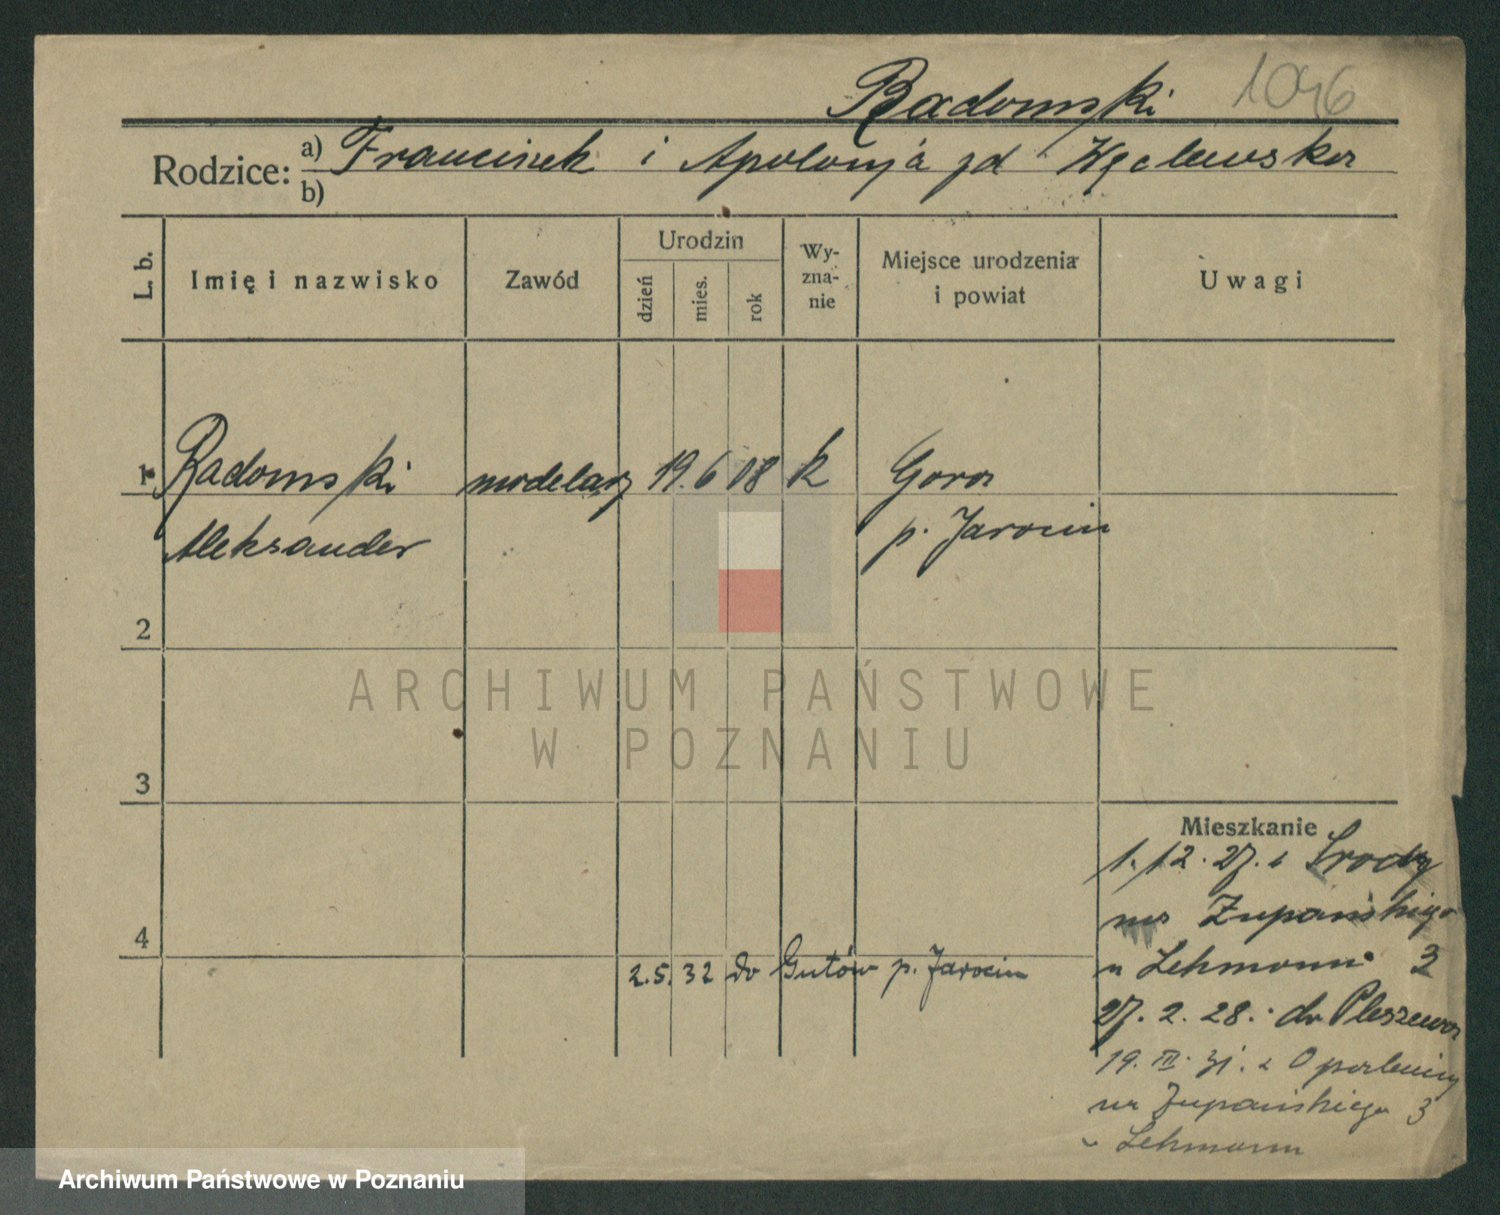 Radomski 1046
Rodzice: a) Franciszek i Apolonja zd Węclewska
b)
L. b. Imię i nazwisko Zawód Urodzin dzień mies. rok Wy-zna-nie Miejsce urodzenia i powiat Uwagi
1 Radomski modelarz 19. 6 08 k Gora
Aleksander p. Jarocin
2
ARCHIWUM PAŃSTWOWE
W POZNANIU
3
Mieszkanie
1. 12. 27. z Środy
na Żupańskiego
4
u Lehmann 3
2.5. 32 do Gutów p. Jarocin
27. 2. 28. do Pleszewa
19. III. 31. z
na Żupańskiego 3
u Lehmann
Archiwum Państwowe w Poznaniu